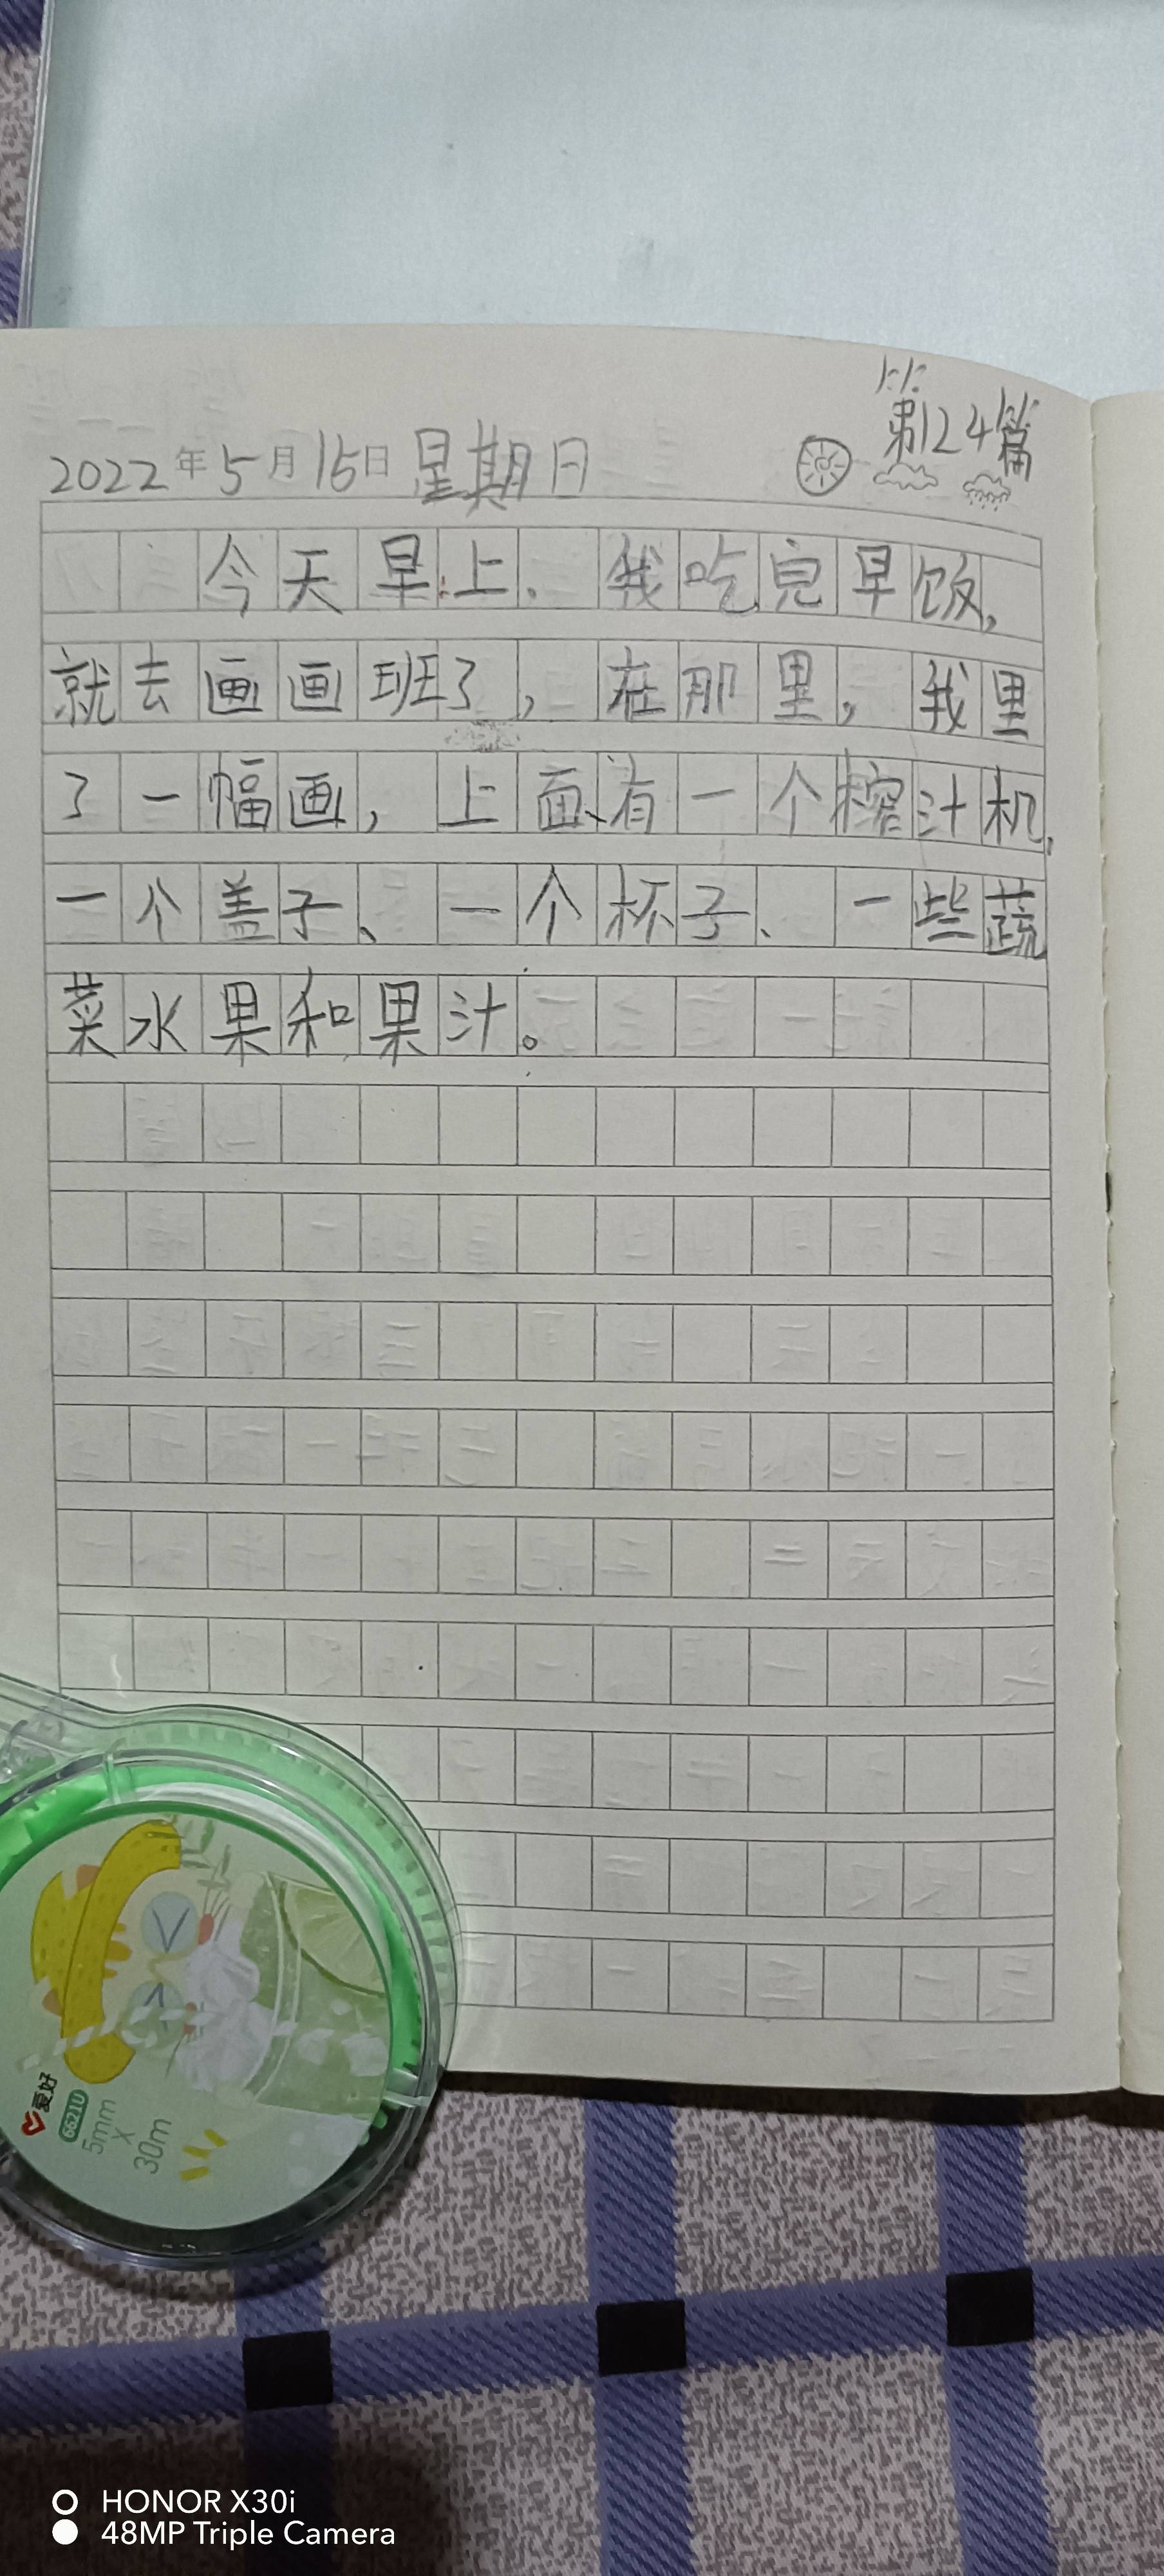 第124篇
2022年5月15日 星期日
今天早上、我吃完早饭,
就去画画班了,在那里,我里
了一幅画,上面、有一个榨汁机、
一个盖子、一个杯子、一些蔬
菜水果和果汁。
爱好
6621U
5mm
X
30m
HONOR X30i
48MP Triple Camera